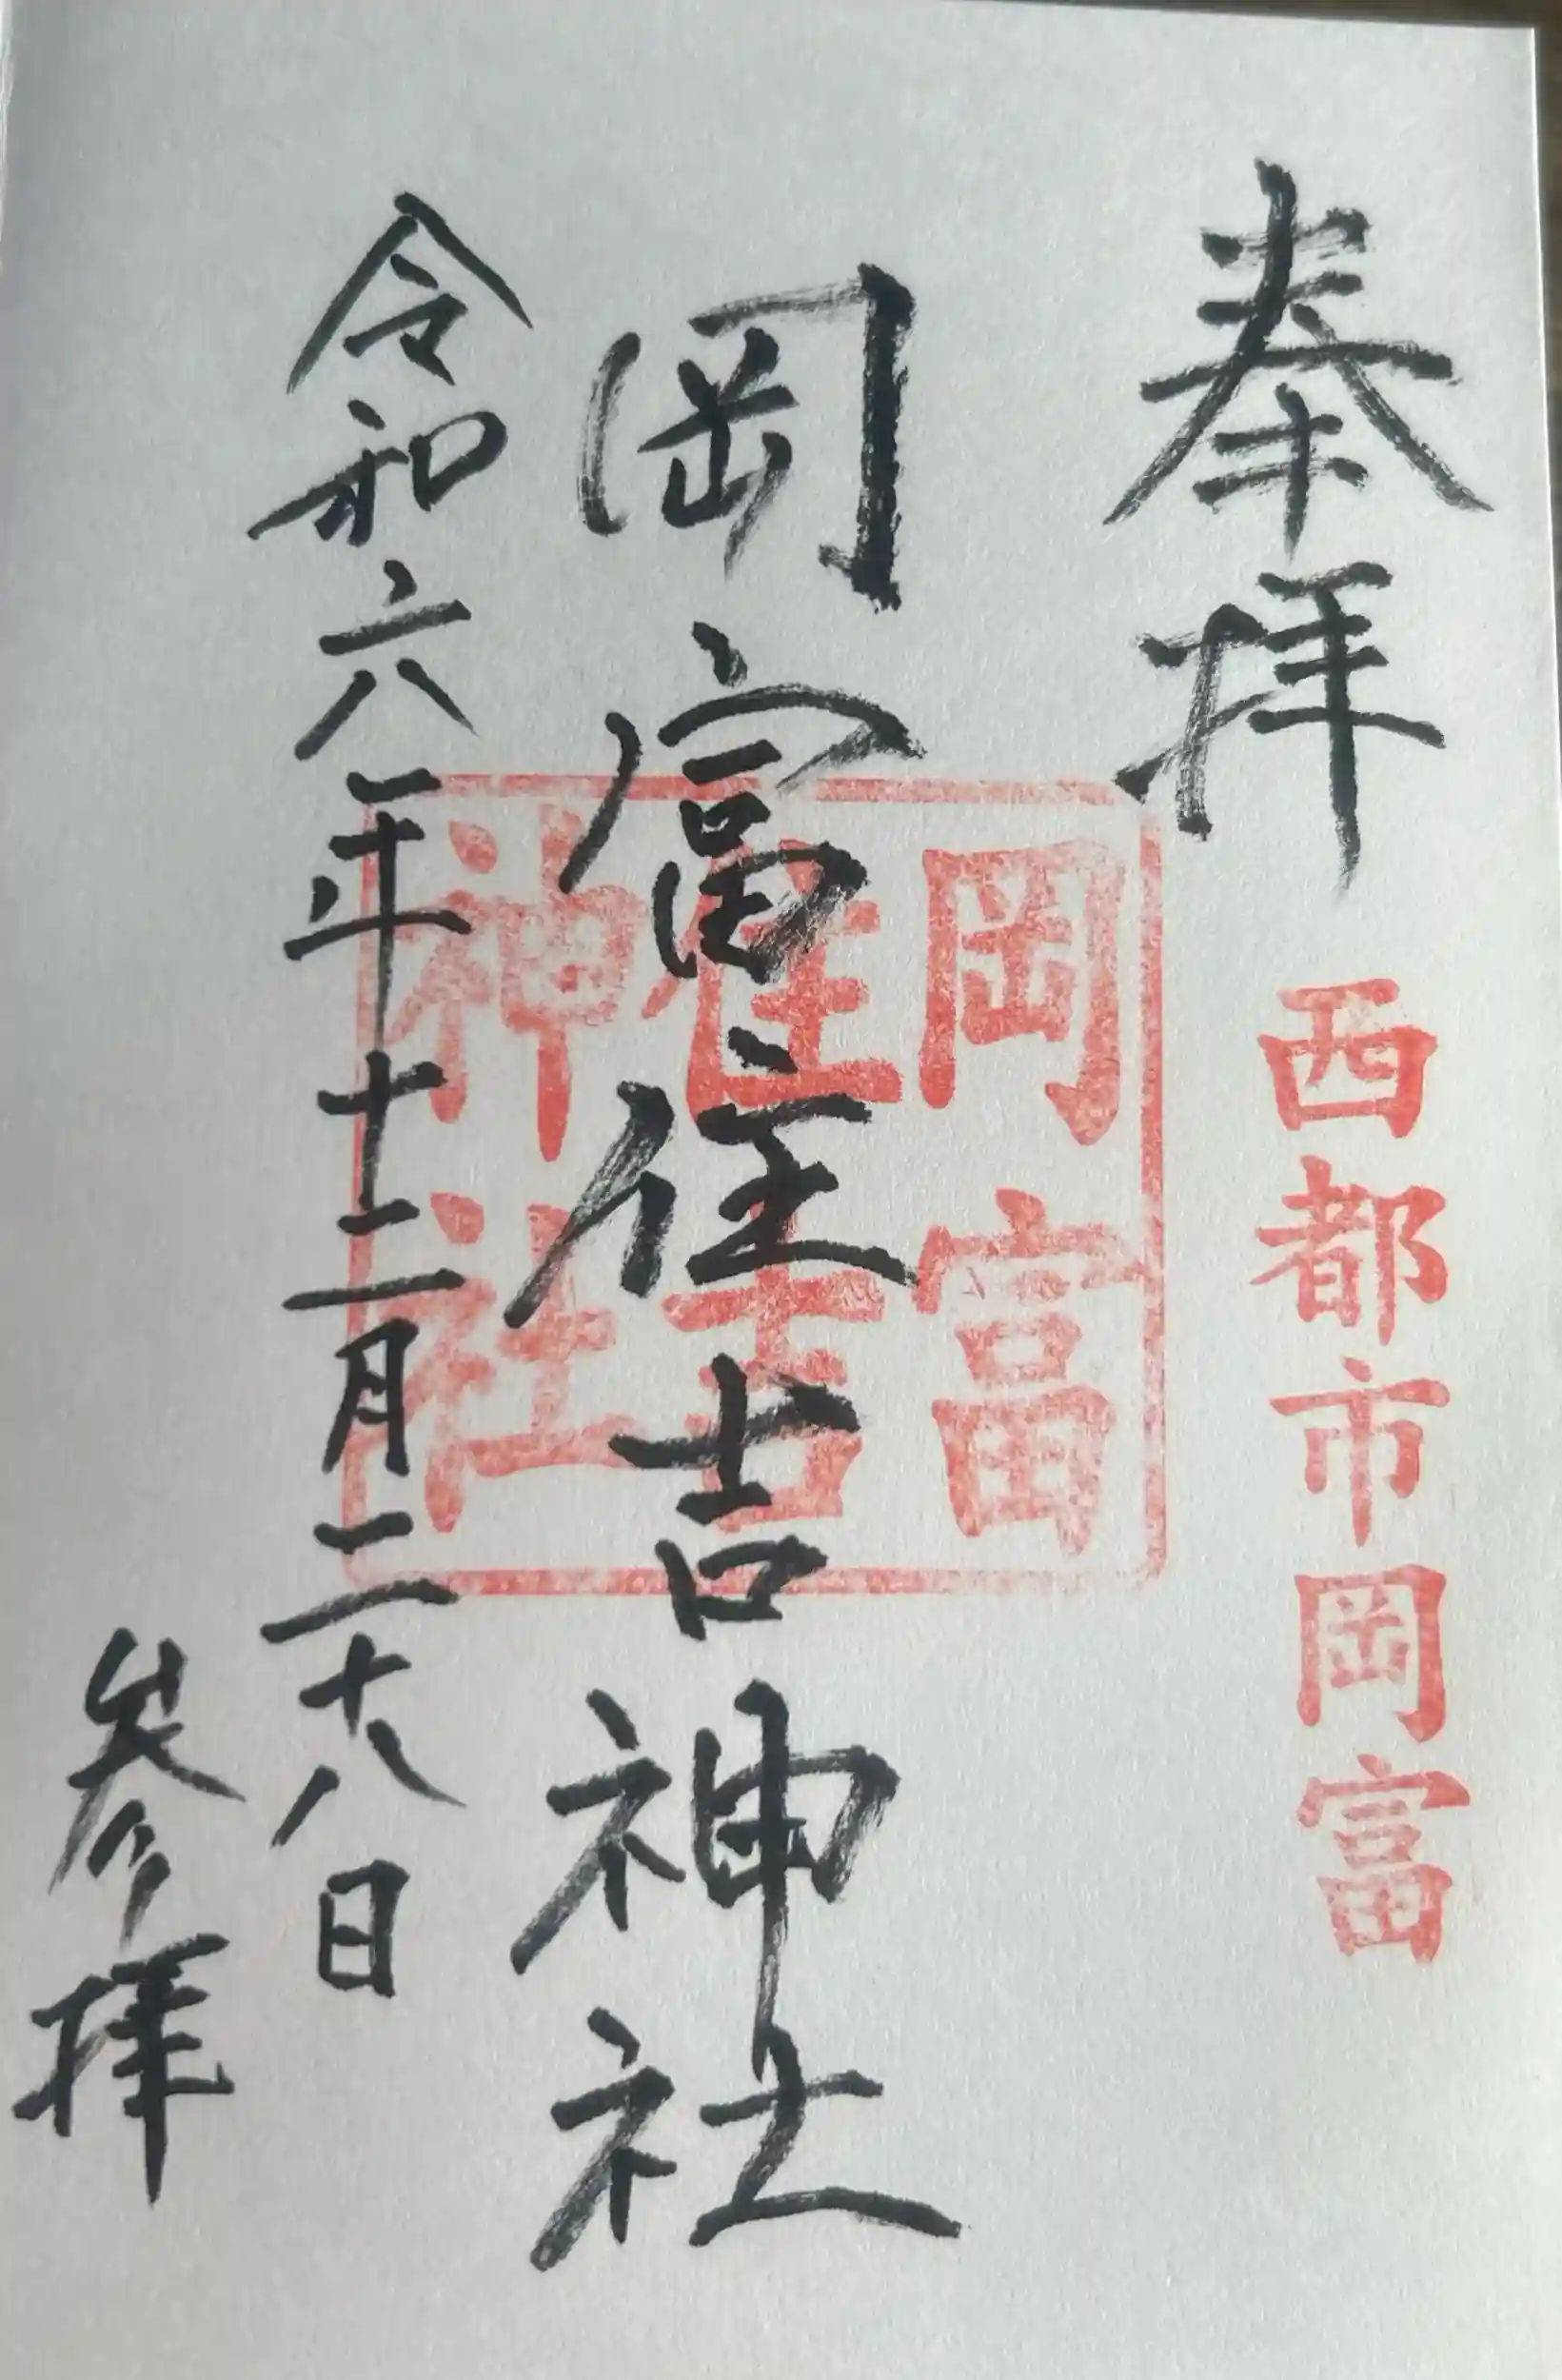 奉拝
西都市岡富
岡富
住吉
神社
岡富住吉神社
令和六年十二月二十八日
参拝